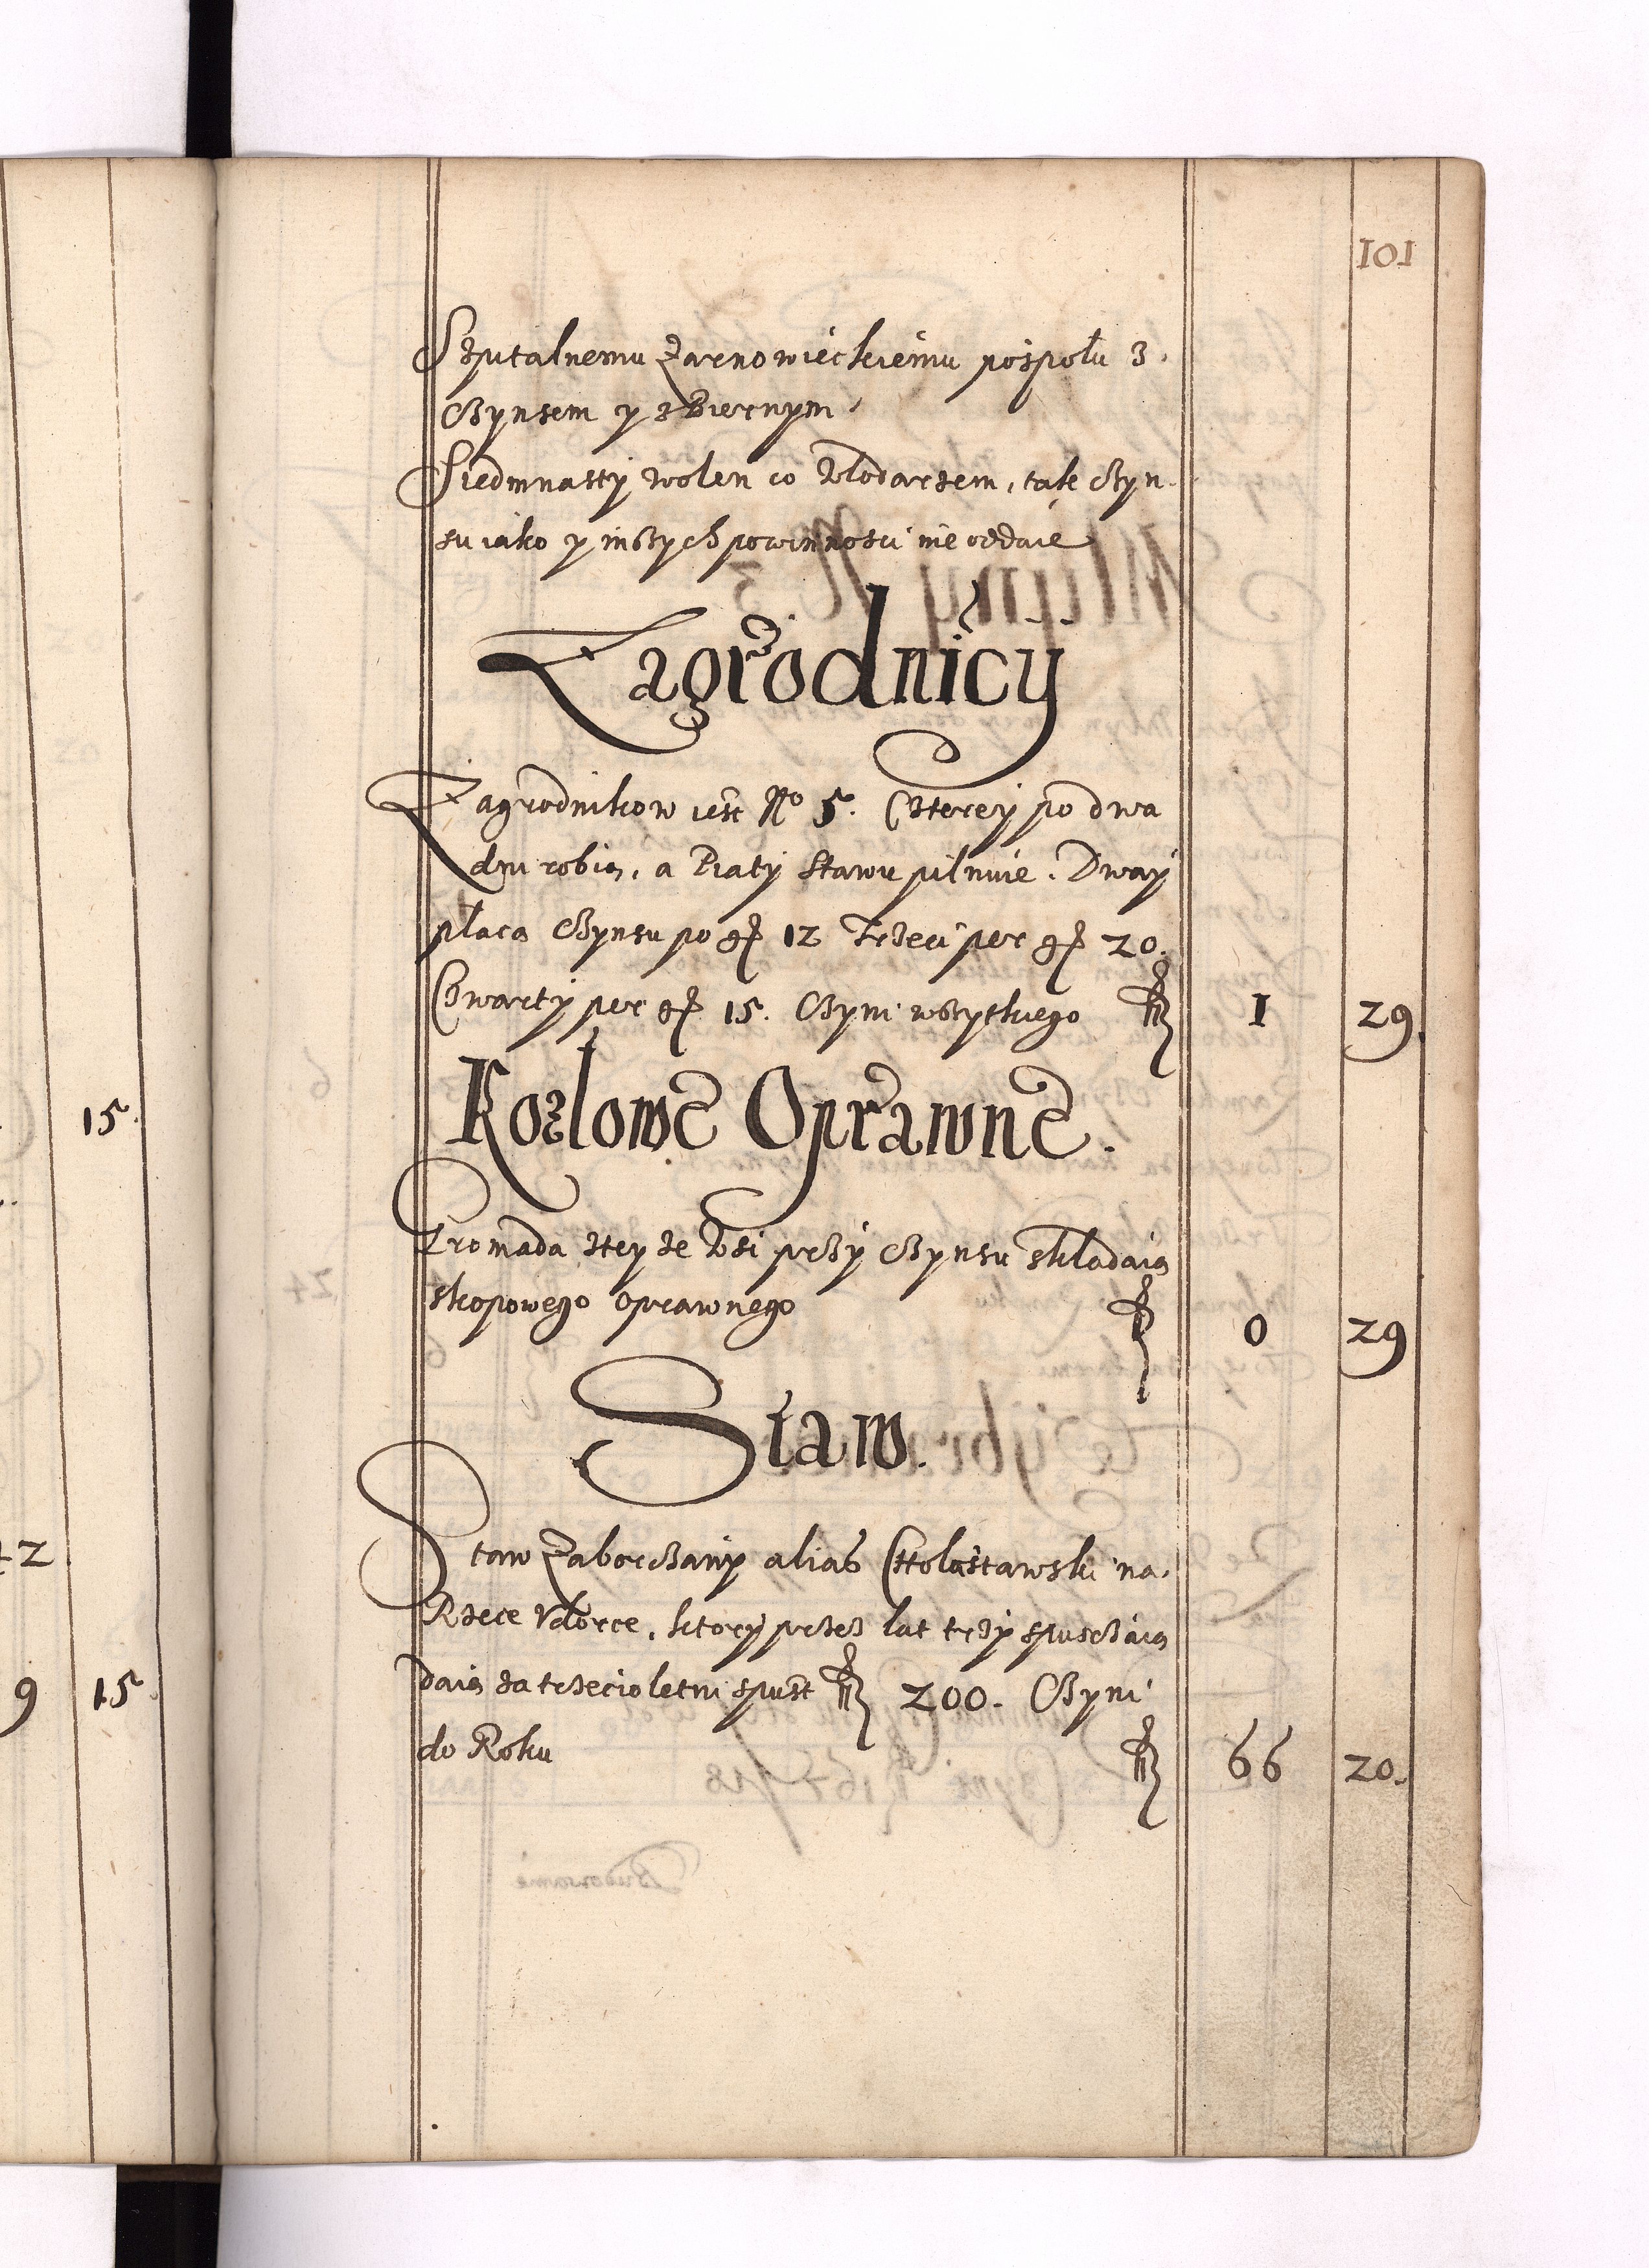 101
Szpitalnemu Zarnowieckiemu pospołu z.
Czynszem y zBiernym,
Siedmnasty wolen co Włodarzem, tak Czyn.
szu iako y inszych powinnosci nie oddaie
Zagrodnicy
Zagrodnikow iest No 5. Czterey po dwa
dni robią, a Piąty Stawu pilnuie. Dway
płacą Czynszu po gł 12 Trzeci per gł 20.
Czwarty per gł 15. Czyni wszytkiego fl 1 29.
Kozłowe Oprawne.
Gromada ztey ze Wsi przy Czynszu składaią
skopowego oprawnego fl 0 29
Staw.
Staw Zaborczany alias na.
Rzece Udorce, ktory przez lat trzy spuszczaią
daią za trzecioletni spust fl 200. Czyni
do Roku fl 66 20.
15.
42
9 15